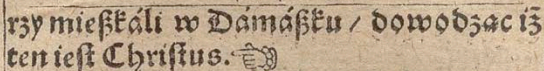 rzy mießkáli w Dámáßku / dowodzac iż
ten iest Christus.☜